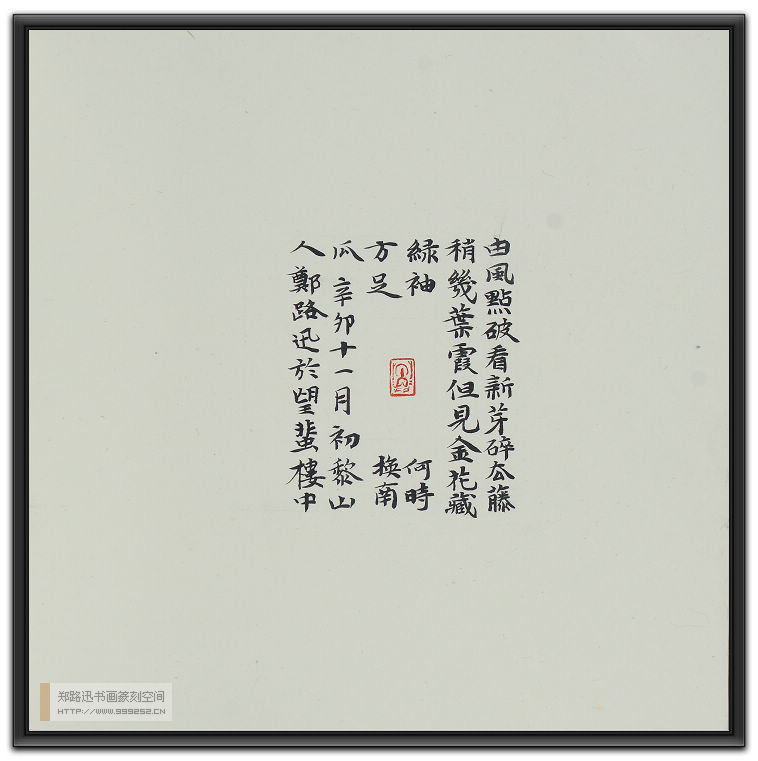 由風點破看新芽碎厺藤
稍幾葉霞但見金花藏
緑袖 何時
方足 換南
瓜 辛卯十一月初黎山
人鄭路迅於望蜚樓中
郑路迅书画篆刻空间
HTTP://WWW.999252.CN